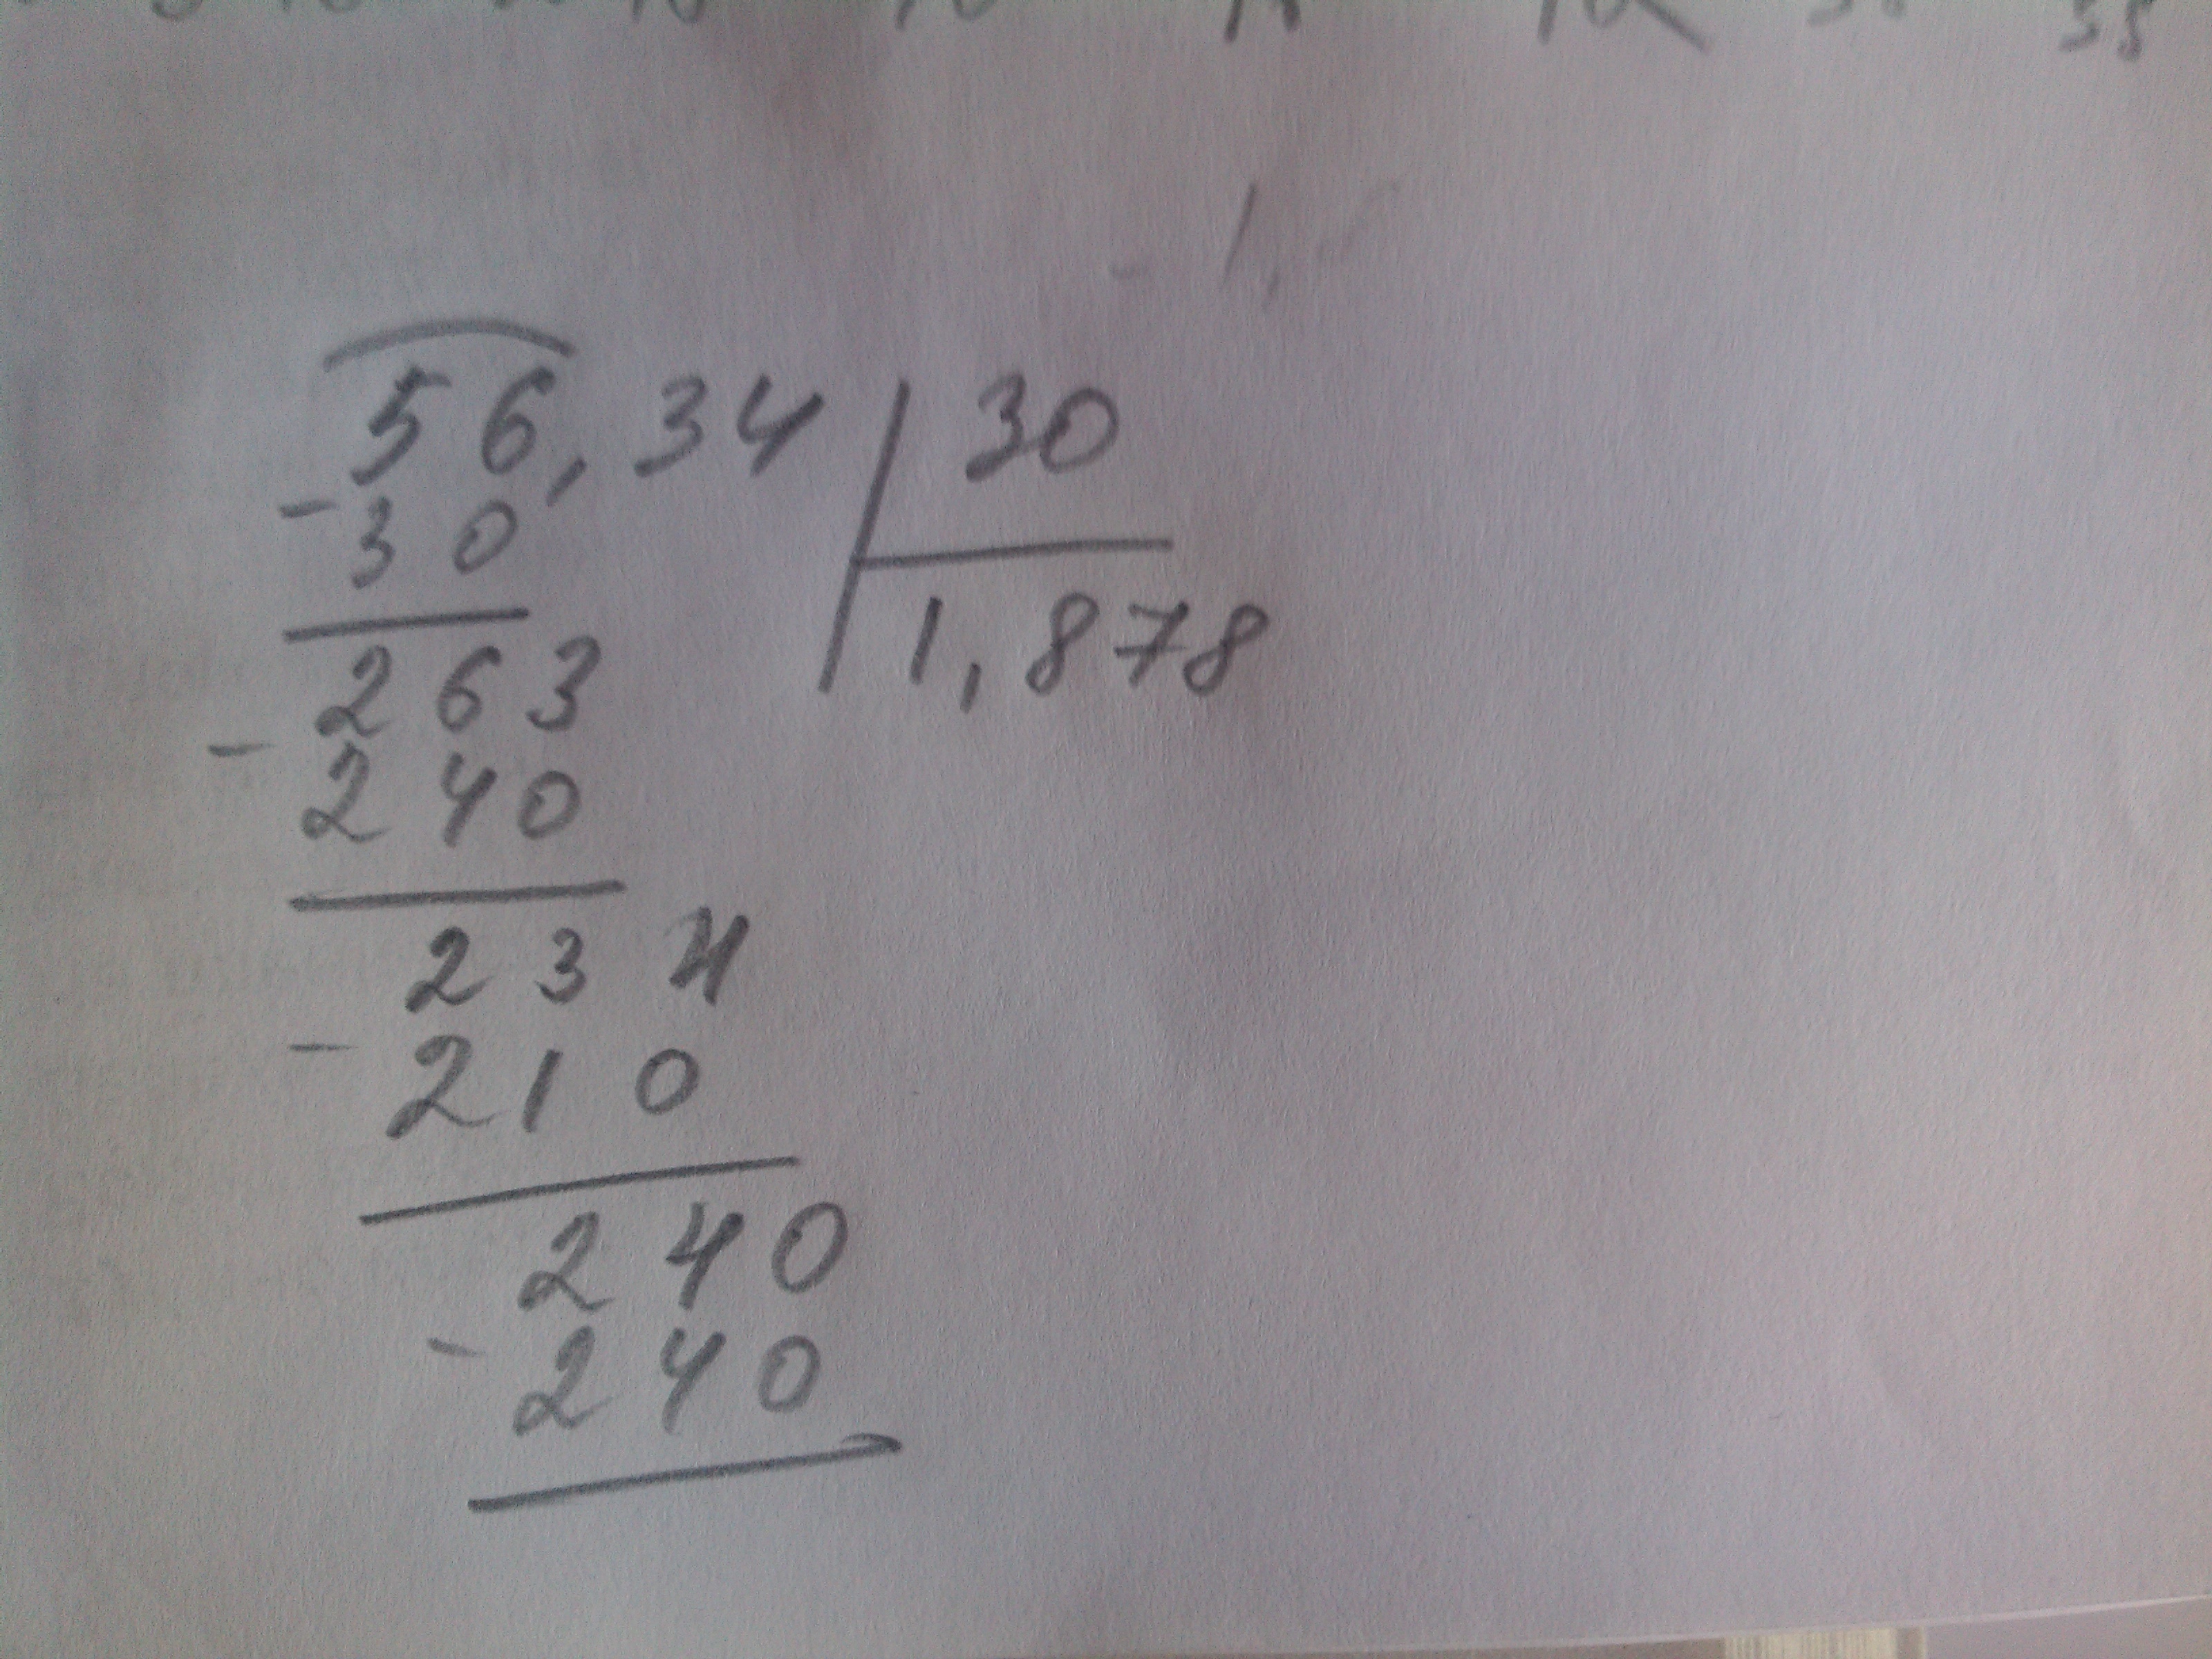 56,34 | 30
- 30
1,878
263
- 240
234
- 210
240
- 240